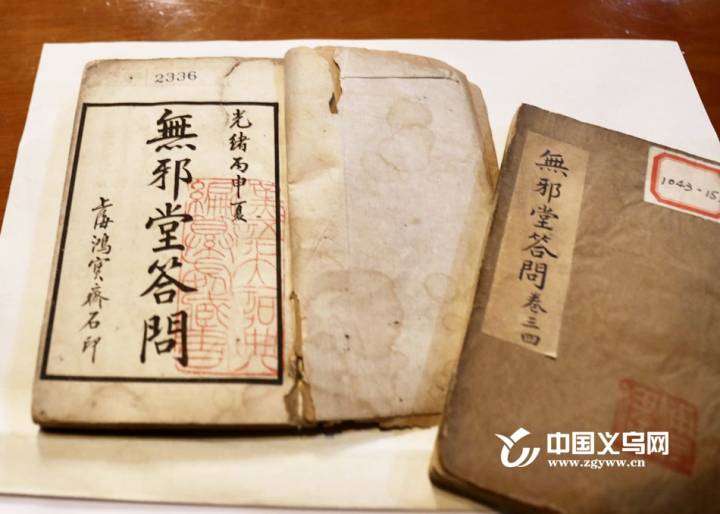 2336
光緒丙申夏
無邪堂答問
上海鴻寶齋石印
無邪堂答問 卷三四
1043-15
中国义乌网
www.zgyww.cn